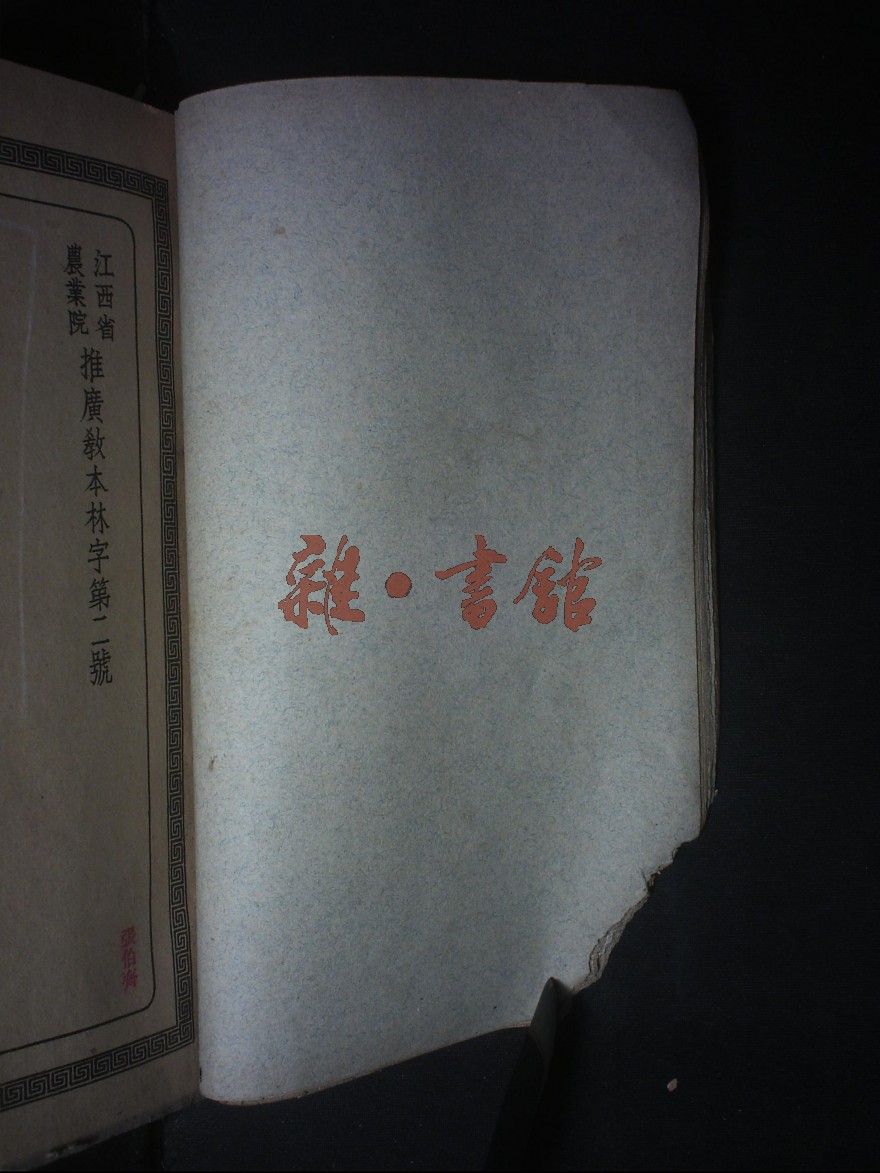 江西省
農業院
推廣教本林字第二號
張伯齊
雜·書館